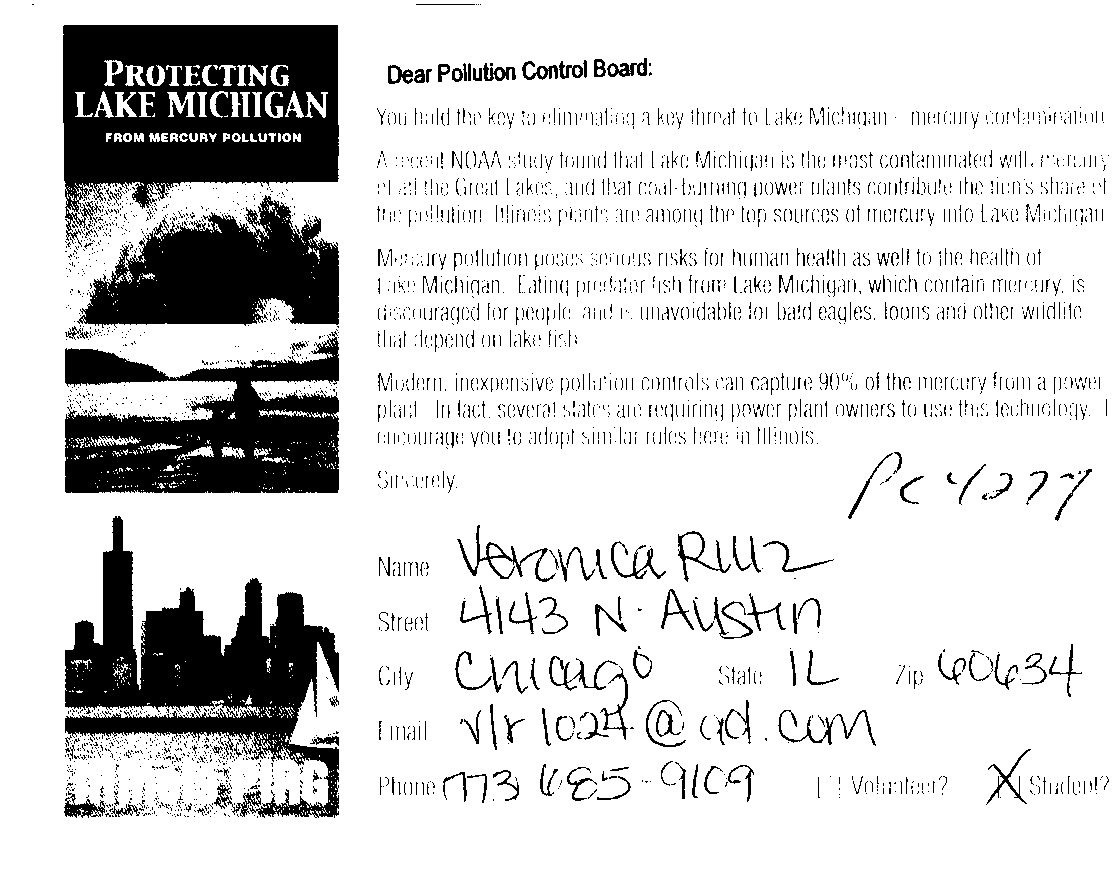 PROTECTING
LAKE MICHIGAN
FROM MERCURY POLLUTION
ILLINOIS PIRG
Dear Pollution Control Board:
You hold the key to eliminating a key threat to Lake Michigan - mercury contamination.
A recent NOAA study found that Lake Michigan is the most contaminated with mercury
of all the Great Lakes, and that coal-burning power plants contribute the lion's share of
the pollution. Illinois plants are among the top sources of mercury into Lake Michigan.
Mercury pollution poses serious risks for human health as well to the health of
Lake Michigan. Eating predator fish from Lake Michigan, which contain mercury, is
discouraged for people, and is unavoidable for bald eagles, loons and other wildlife
that depend on lake fish.
Modern, inexpensive pollution controls can capture 90% of the mercury from a power
plant. In fact, several states are requiring power plant owners to use this technology. I
encourage you to adopt similar rules here in Illinois.
Sincerely,
PC 4277
Name Veronica Ruiz
Street 4143 N. Austin
City Chicago State IL Zip 60634
Email vlr1024@aol.com
Phone (773) 685-9109 Volunteer? X Student?